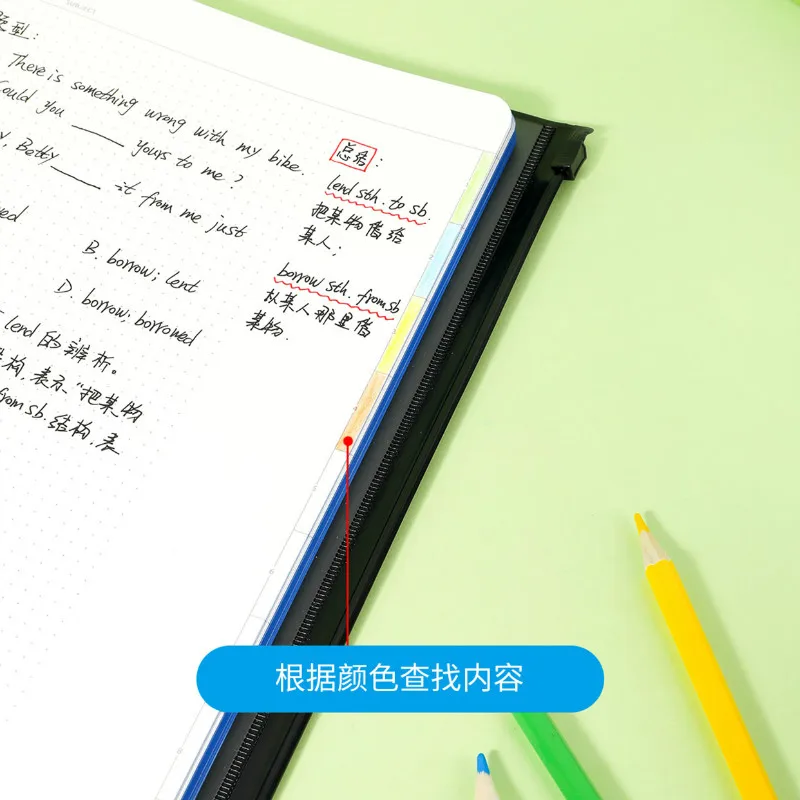 题型:
There is something wrong with my bike.
Could you ____ yours to me?
Betty ____ it from me just
B. borrow; lent
D. borrow; borrowed
lend的辨析。
结构,表示"把某物
from sb.结构,表
总结:
lend sth. to sb.
把某物借给
某人;
borrow sth. from sb
从某人那里借
某物.
根据颜色查找内容